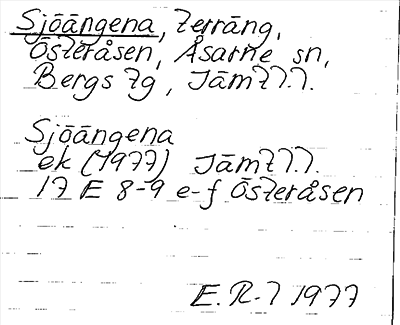 Sjöängena, Terräng,
Österåsen, Åsarne sn,
Bergs tg, Jämtl.
Sjöängena
ek (1977) Jämtl.
17 E 8-9 e-f Österåsen
E.R-l 1977